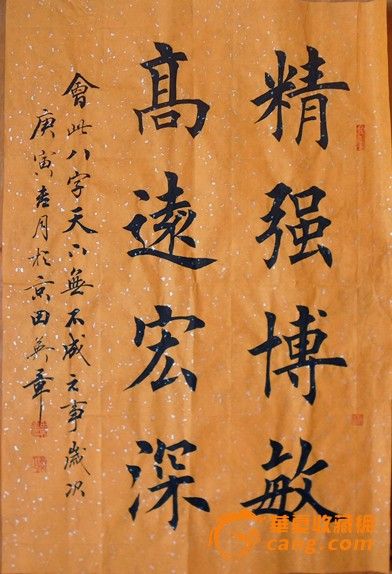 精强博敏
高遠宏深
會此八字天下無不成之事歲次
庚寅春月於京田英章
華夏收藏網
cang.com